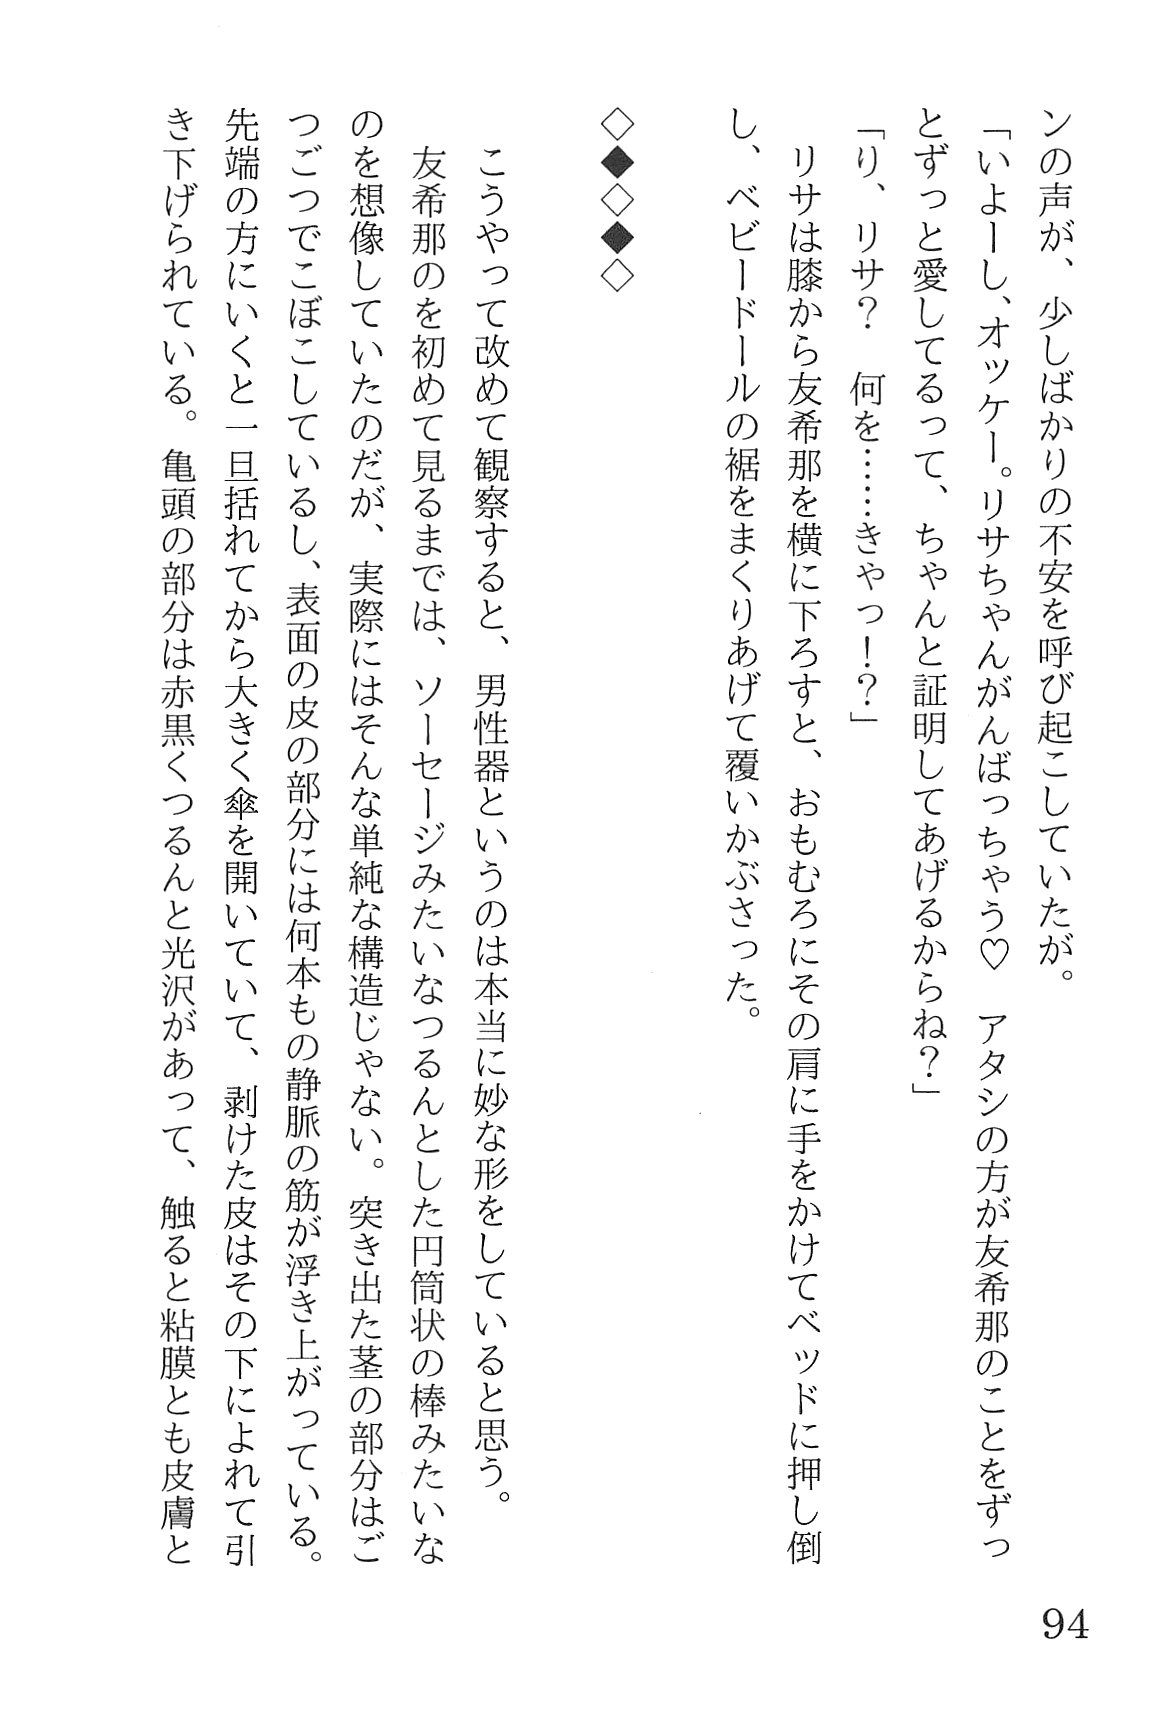 ンの声が、少しばかりの不安を呼び起こしていたが。
「いよーし、オッケー。リサちゃんがんばっちゃう♡　アタシの方が友希那のことをずっ
とずっと愛してるって、ちゃんと証明してあげるからね？」
「り、リサ？　何を……きゃっ！？」
　リサは膝から友希那を横に下ろすと、おもむろにその肩に手をかけてベッドに押し倒
し、ベビードールの裾をまくりあげて覆いかぶさった。
◇◆◇◆◇
　こうやって改めて観察すると、男性器というのは本当に妙な形をしていると思う。
　友希那のを初めて見るまでは、ソーセージみたいなつるんとした円筒状の棒みたいな
のを想像していたのだが、実際にはそんな単純な構造じゃない。突き出た茎の部分はご
つごつでこぼこしているし、表面の皮の部分には何本もの静脈の筋が浮き上がっている。
先端の方にいくと一旦括れてから大きく傘を開いていて、剥けた皮はその下によれて引
き下げられている。亀頭の部分は赤黒くつるんと光沢があって、触ると粘膜とも皮膚と
94